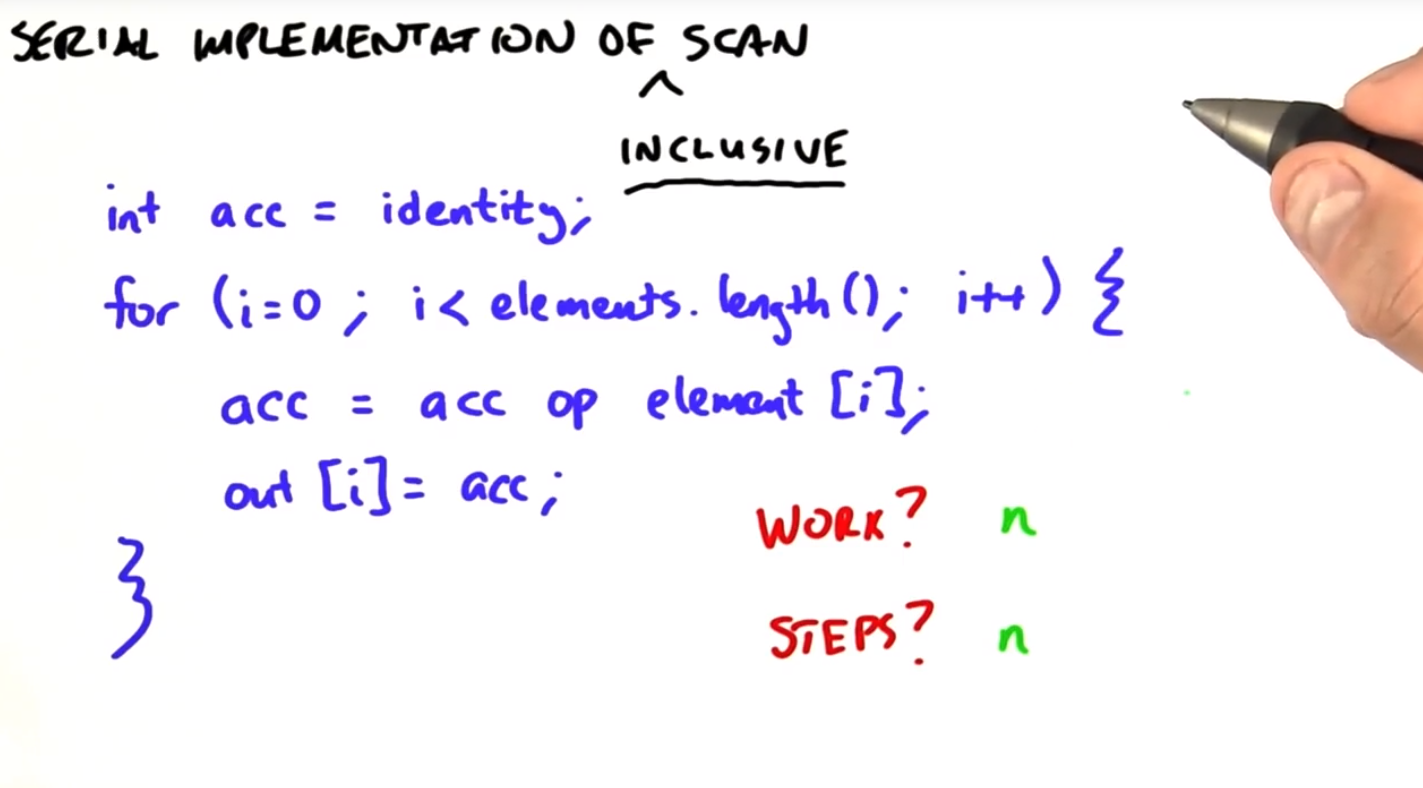 SERIAL IMPLEMENTATION OF SCAN
^
INCLUSIVE
int acc = identity;
for (i=0 ; i< elements.length(); i++) {
acc = acc op element [i];
out [i]= acc;
WORK? n
}
STEPS? n